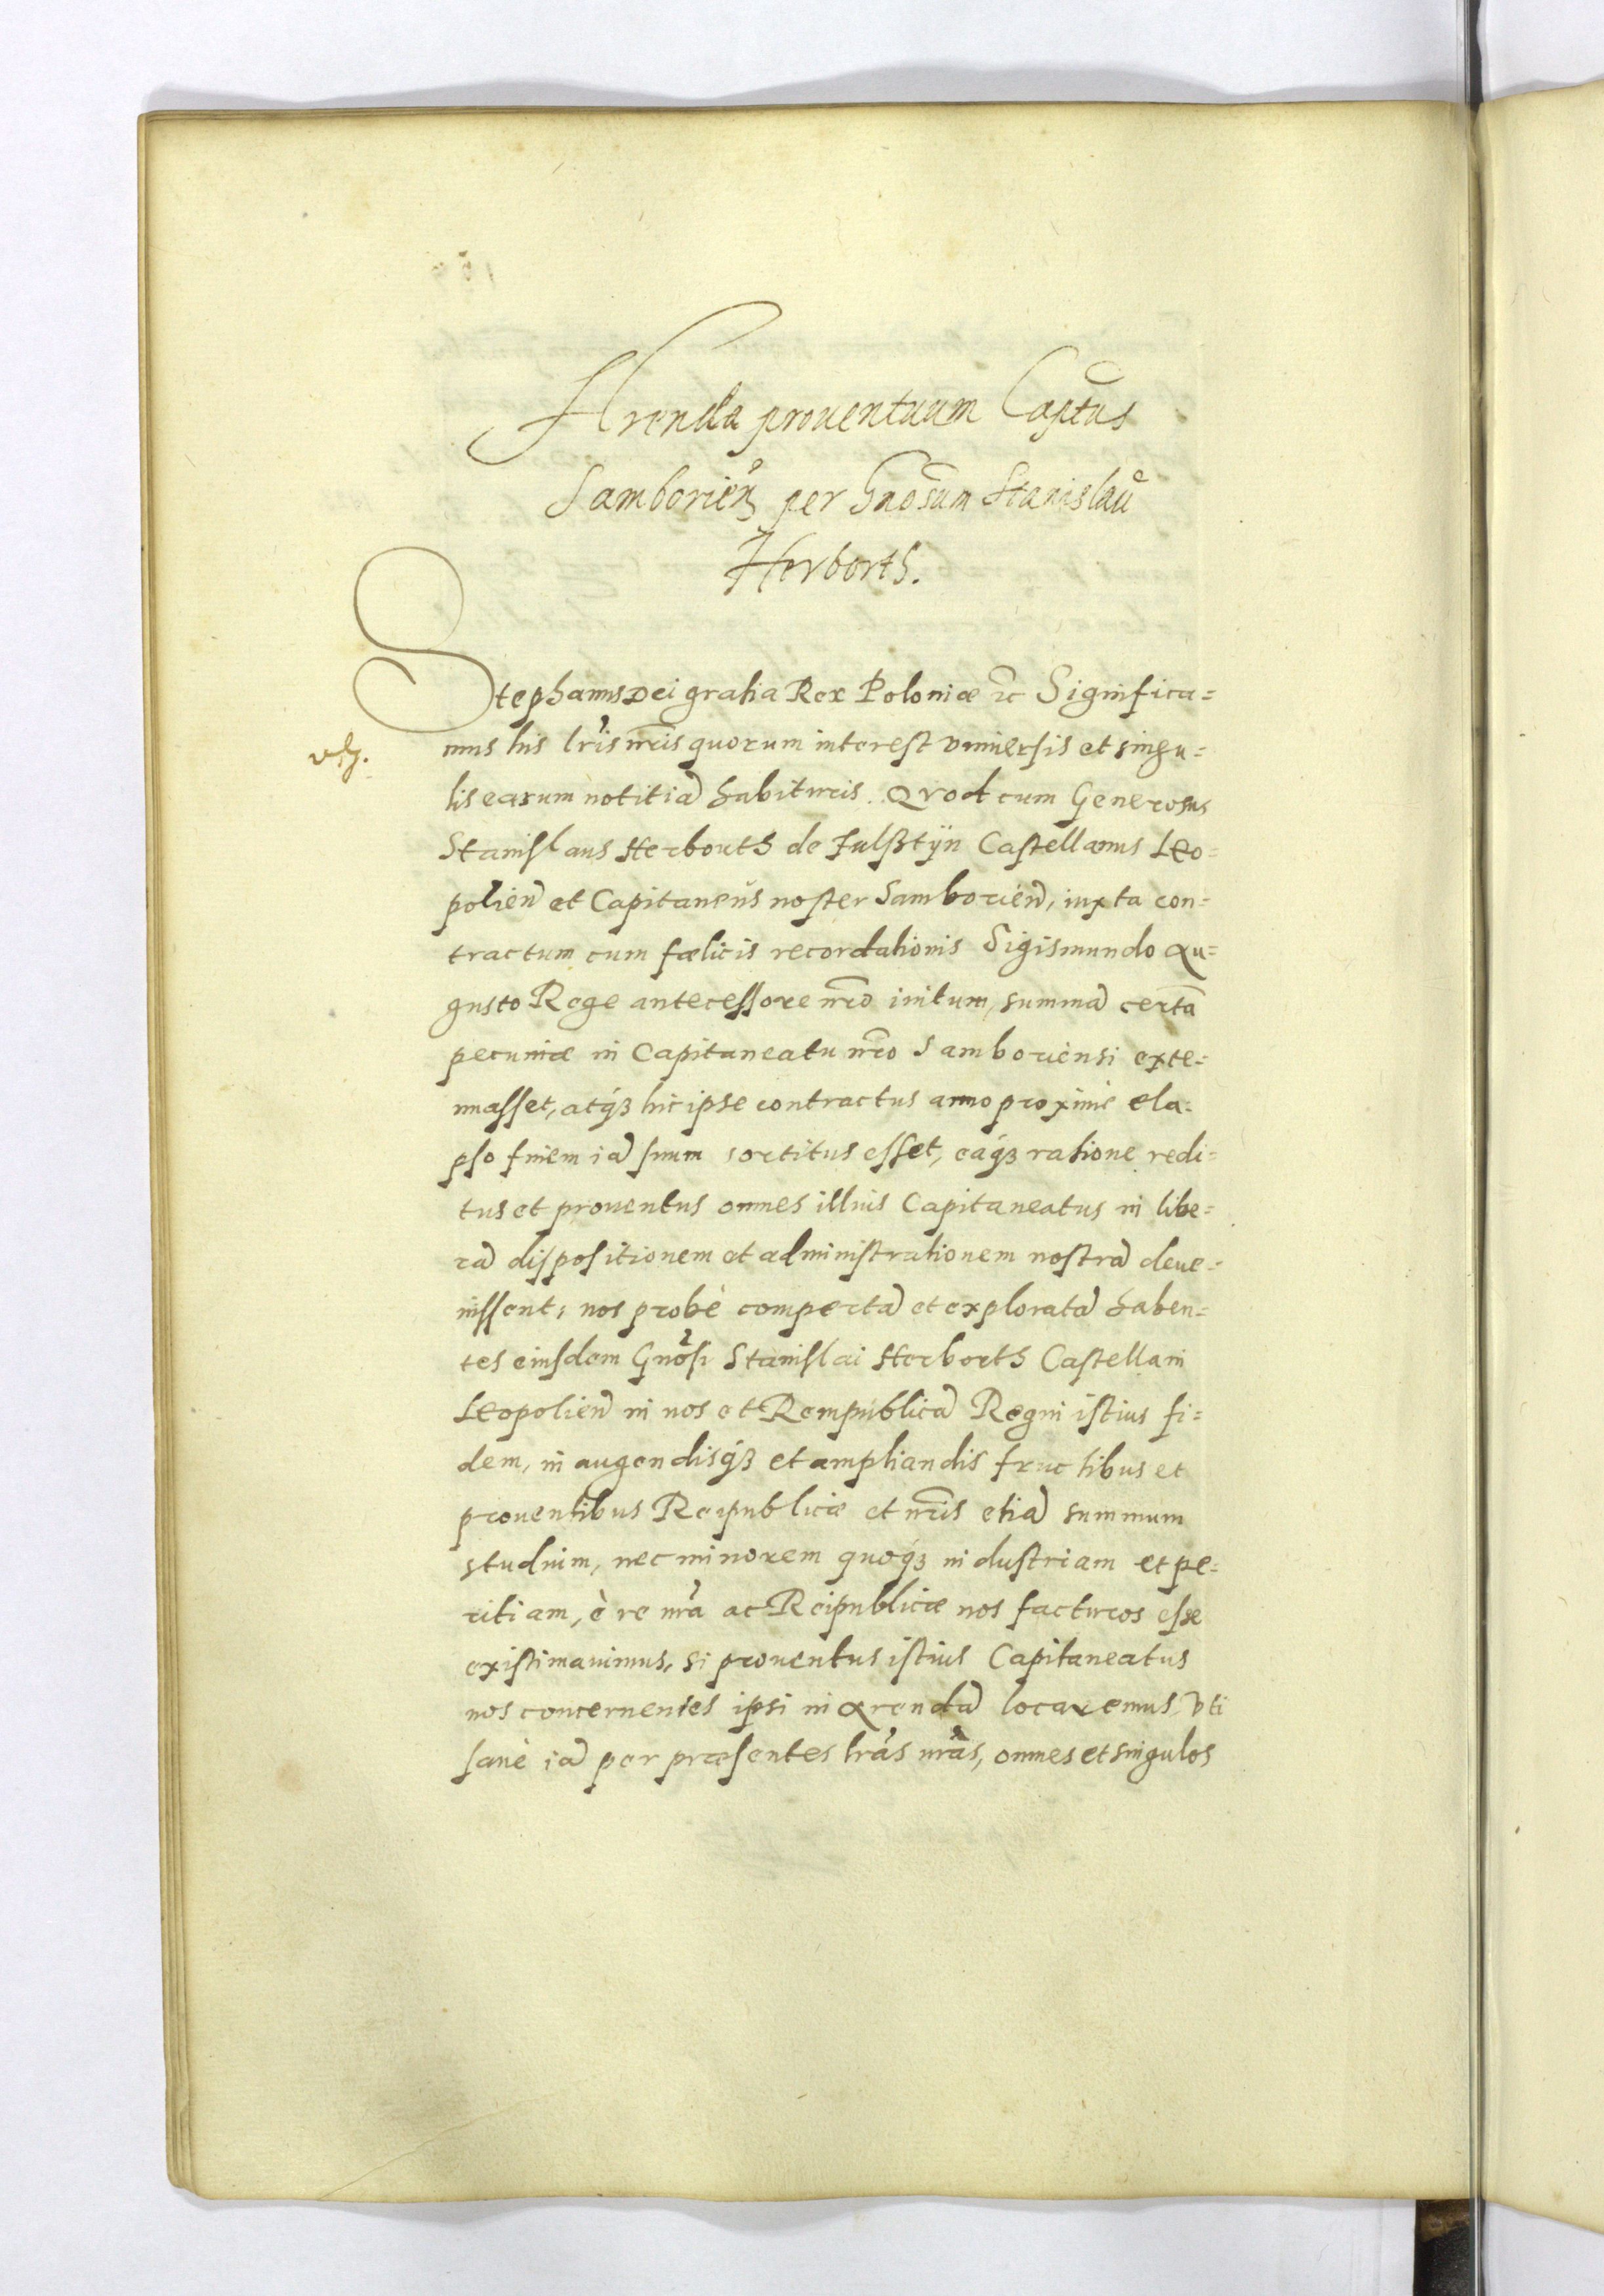 Arenda prouentuum Captus
Samborien per Gnosum Stanislaū
Herborth.
Stephanus Dei gratia Rex Poloniæ etc Significa=
mus his lris nris quorum interest vniuersis et singu=
lis earum notitiā habituris. Quod cum Generosus
Stanislaus Herborth de Fulsztÿn Castellanus Leo=
polien et Capitaneus noster Samborien, iuxta con=
tractum cum fœlicis recordationis Sigismundo Au=
gusto Rege antecessore nrō initum, summā certā
pecuniæ in Capitaneatu nrō Samboriensi exte=
nuasset, atq́ꝫ hic ipse contractus anno proximè ela=
pso finem iā suum sortitus esset, eaq́ꝫ ratione redi=
tus et prouentus omnes illius Capitaneatus in libe=
rā dispositionem et administrationem nostrā deue=
nissent; nos probè compertā et exploratā haben=
tes eiusdem Gnosi Stanislai Herborth Castellani
Leopolien in nos et Rempublicā Regni istius fi=
dem, in augendisq́ꝫ et ampliandis fructibus et
prouentibus Reipublicæ et nris etiā summum
studium, nec minorem quoq́ꝫ industriam et pe=
ritiam, è re nrā ac Reipublicæ nos facturos esse
existimauimus, si prouentus istius Capitaneatus
nos concernentes ipsi in Arendā locaremus, vti
sanè iā per præsentes lrās nrās, omnes et singulos